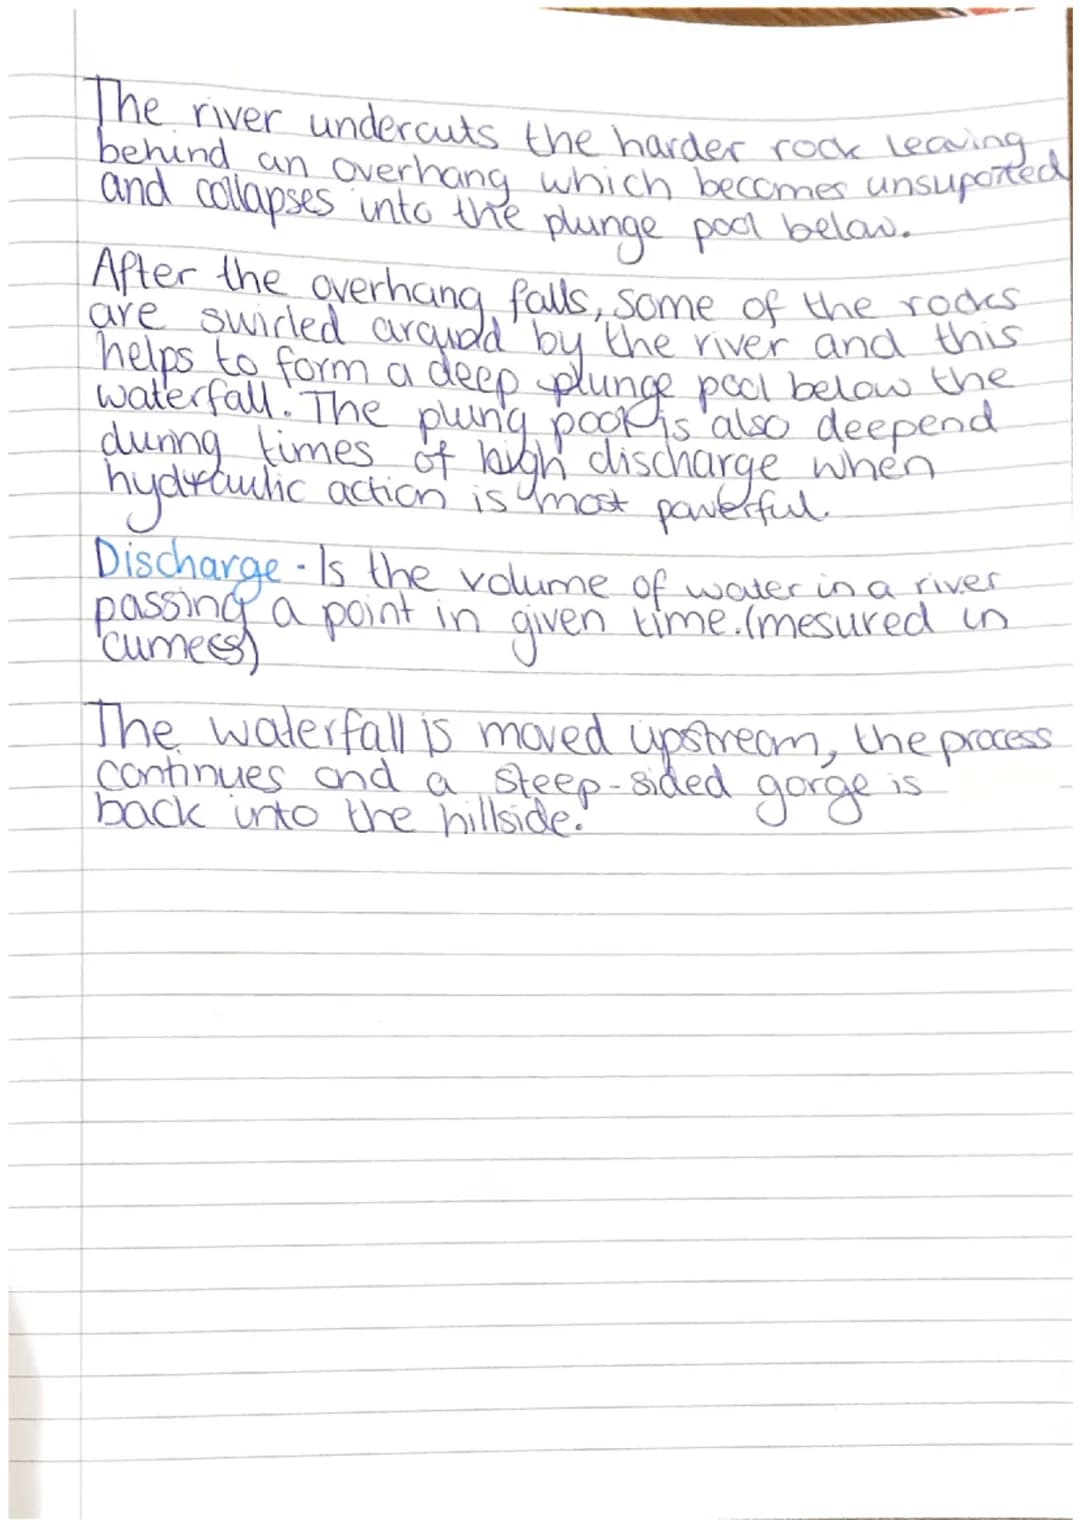 The river undercuts the harder rock leaving
behind an overhang which becomes unsuported
and collapses into the plunge pool below.
After the overhang falls, some of the rocks
are swirled around by the river and this
helps to form a deep plunge pool below the
waterfall. The plung pool is also deepend
during times of high discharge when
hydraulic action is most powerful.
Discharge - Is the volume of water in a river
passing a point in given time. (mesured in
cumecs)
The waterfall is moved upstream, the process
continues and a steep-sided gorge is
back into the hillside.